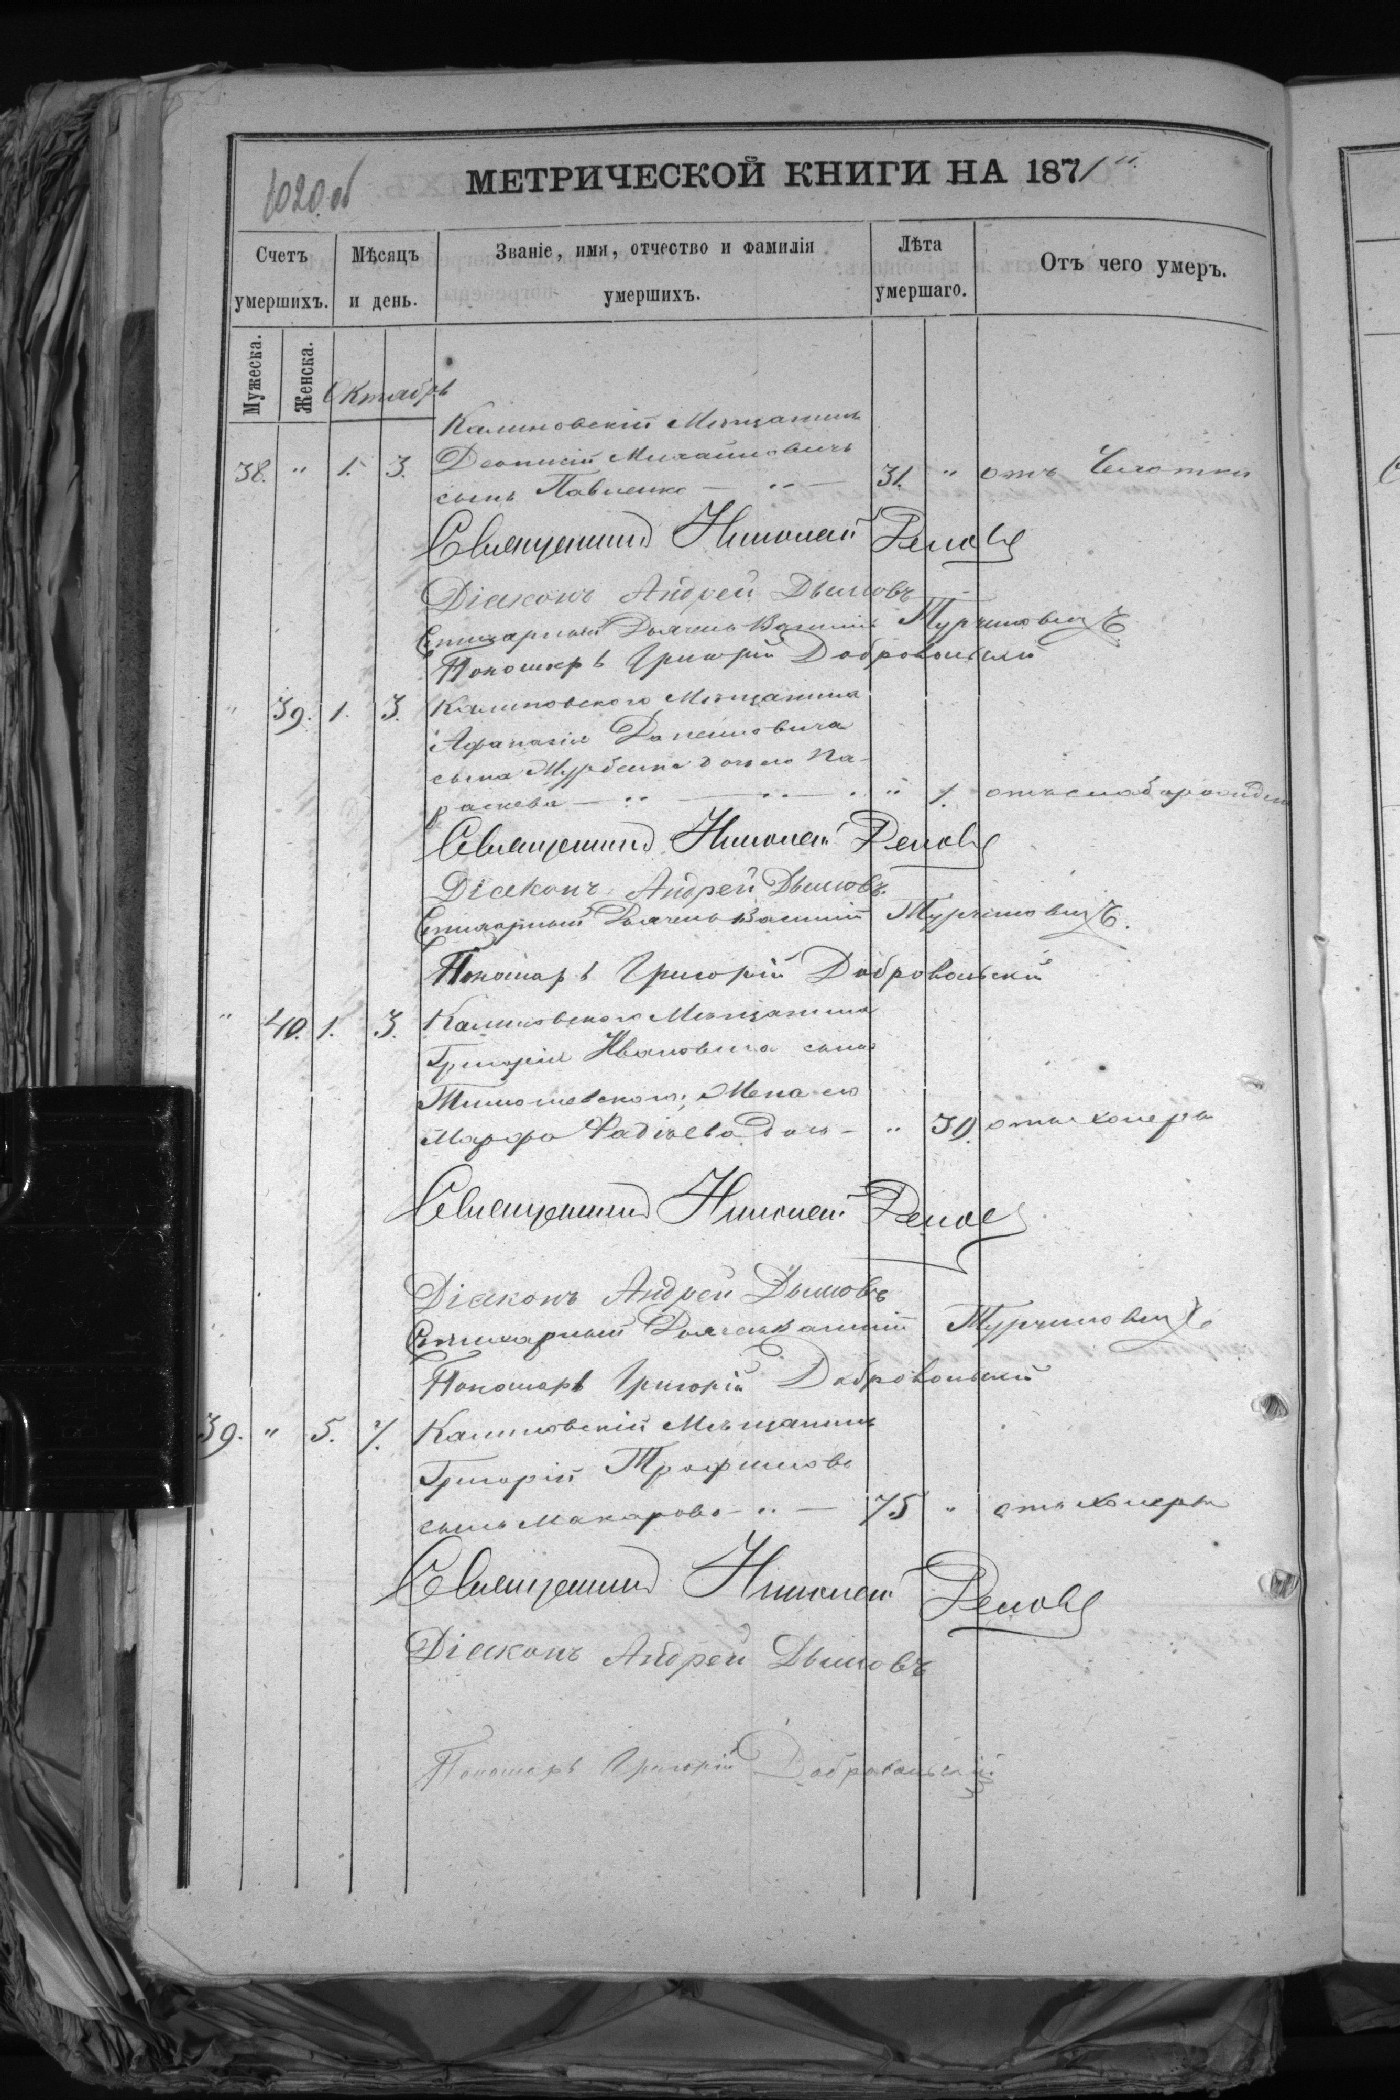 1020 об
МЕТРИЧЕСКОЙ КНИГИ НА 1871
Счетъ умершихъ.
Мѣсяцъ и день.
Званіе, имя, отчество и фамилія умершихъ.
Лѣта умершаго.
Отъ чего умеръ.
Мужеска.
Женска.
Октябрь
Калиновскій Мѣщанинъ
38. " 1. 3. Леонтій Михайловичъ
сынъ Павленко — " — 31. " отъ Чахотки
Священникъ Николай
Діаконъ Андрей Дымовъ
Стихарный Дьячекъ Василій Турчиновичъ
Пономарь Григорій Добровольскій
" 39. 1. 3. Калиновского Мѣщанина
Афанасія Даниловича
сына дочь Па-
раскева — " — " — " 1. отъ слаборожден
Священникъ Николай
Діаконъ Андрей Дымовъ
Стихарный Дьячекъ Василій Турчиновичъ.
Пономарь Григорій Добровольскій
" 40. 1. 3. Калиновского Мѣщанина
Григорія Ивановича сына
Тимошевского, Жена его
Марфа Фадѣева дочь — " 30. отъ холеры
Священникъ Николай
Діаконъ Андрей Дымовъ
Стихарный Дьячекъ Василій Турчиновичъ
Пономарь Григорій Добровольскій
39. " 5. 7. Калиновскій Мѣщанинъ
Григорій Трофимовъ
сынъ Макарова — " — 75 " отъ холеры
Священникъ Николай
Діаконъ Андрей Дымовъ
Пономарь Григорій Добровольскій